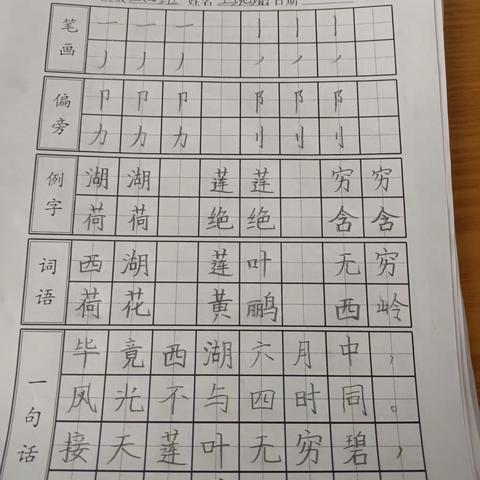 姓名 日期
笔画 一 一 一 丨 丨 丨
丿 丿 丿 ㇒ ㇒ ㇒
偏旁 卩 卩 卩 阝 阝 阝
力 力 力 刂 刂 刂
例字 湖 湖 莲 莲 穷 穷
荷 荷 绝 绝 含 含
词语 西 湖 莲 叶 无 穷
荷 花 黄 鹂 西 岭
一句话 毕 竟 西 湖 六 月 中 ，
风 光 不 与 四 时 同 。
接 天 莲 叶 无 穷 碧 ，